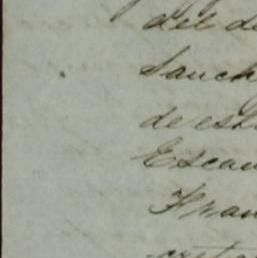 del de
Sanch
de est
Escan
Fran